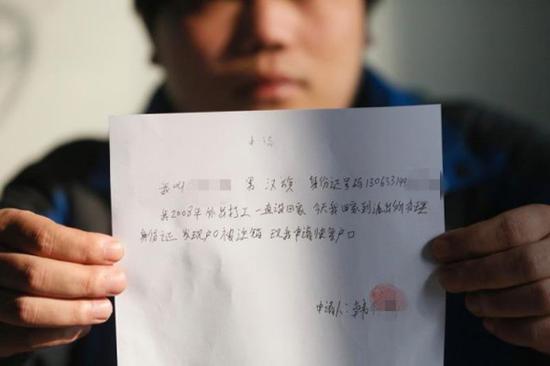 申请
我叫 男 汉族 身份证号码
2008年外出打工 一直没回家 今天我回家到派出所办理
身份证 发现户口被注销 现我申请恢复户口
申请人:韩